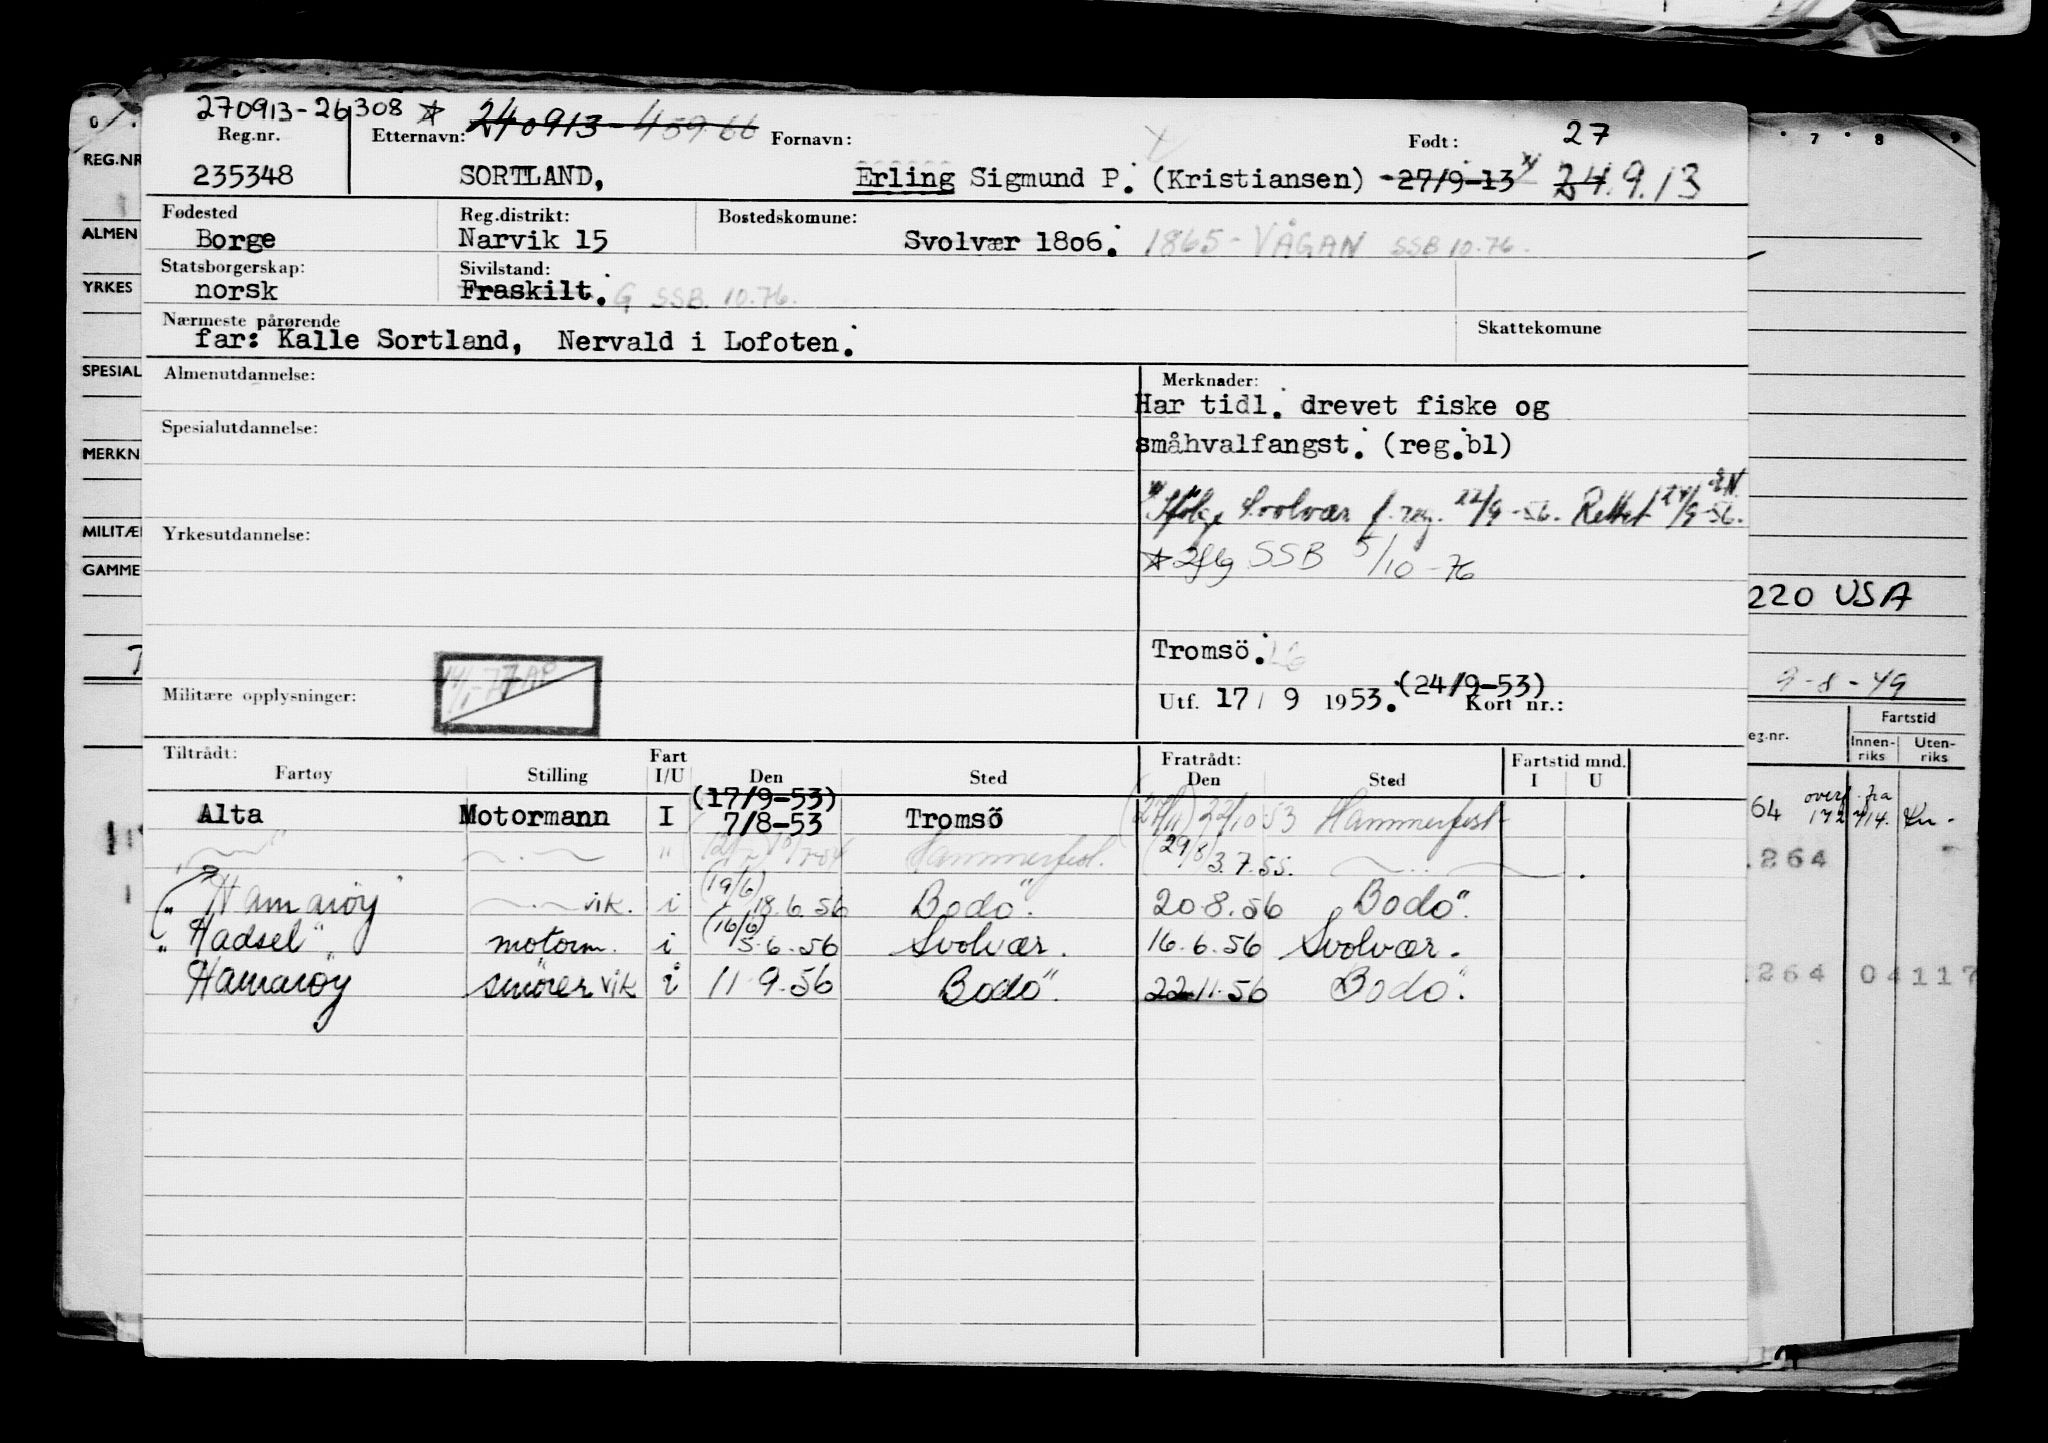 270913-26308 ☆ 240913-45966
Reg.nr. Etternavn: Fornavn: Født: 27
235348 SORTLAND, Erling Sigmund P. (Kristiansen) -27/9-13 x/ 24.9.13
Fødested Reg.distrikt: Bostedskomune:
Borge Narvik 15 Svolvær 1806. 1865-VÅGAN SSB 10.76.
Statsborgerskap: Sivilstand:
norsk Fraskilt. G SSB. 10.76.
Nærmeste pårørende Skattekomune
far: Kalle Sortland, Nervald i Lofoten.
Almenutdannelse: Merknader:
Har tidl. drevet fiske og
Spesialutdannelse:
småhvalfangst. (reg.bl)
Ifølge Svolvær f.reg. 22/9-56. Rettet 24/9-56.
Yrkesutdannelse:
☆ Iflg SSB 5/10-76
Tromsö.
Militære opplysninger: Utf. 17/ 9 1953. (24/9-53) Kort nr.:
Tiltrådt: Fart Fratrådt: Fartstid mnd.
Fartøy Stilling I/U Den Sted Den Sted I U
(17/9-53)
Alta Motormann I 7/8-53 Tromsö 22/10 53 Hammerfest
" Hammerfest. (29/8) 3.7.55.
"Hamarøy" vik. i (19/6) 18.6.56 Bodø. 20.8.56 Bodø.
"Hadsel" motorm. i (16/6) 5.6.56 Svolvær. 16.6.56 Svolvær.
Hamarøy smører vik i 11.9.56 Bodø. 22.11.56 Bodø.
REG.NR
ALMEN
YRKES
SPESIAL
MERKN
MILITÆ
GAMME
7 8 9
220 USA
9-8-49
eg.nr. Fartstid
Innen-riks Uten-riks
64 overf. fra
264
264 04117